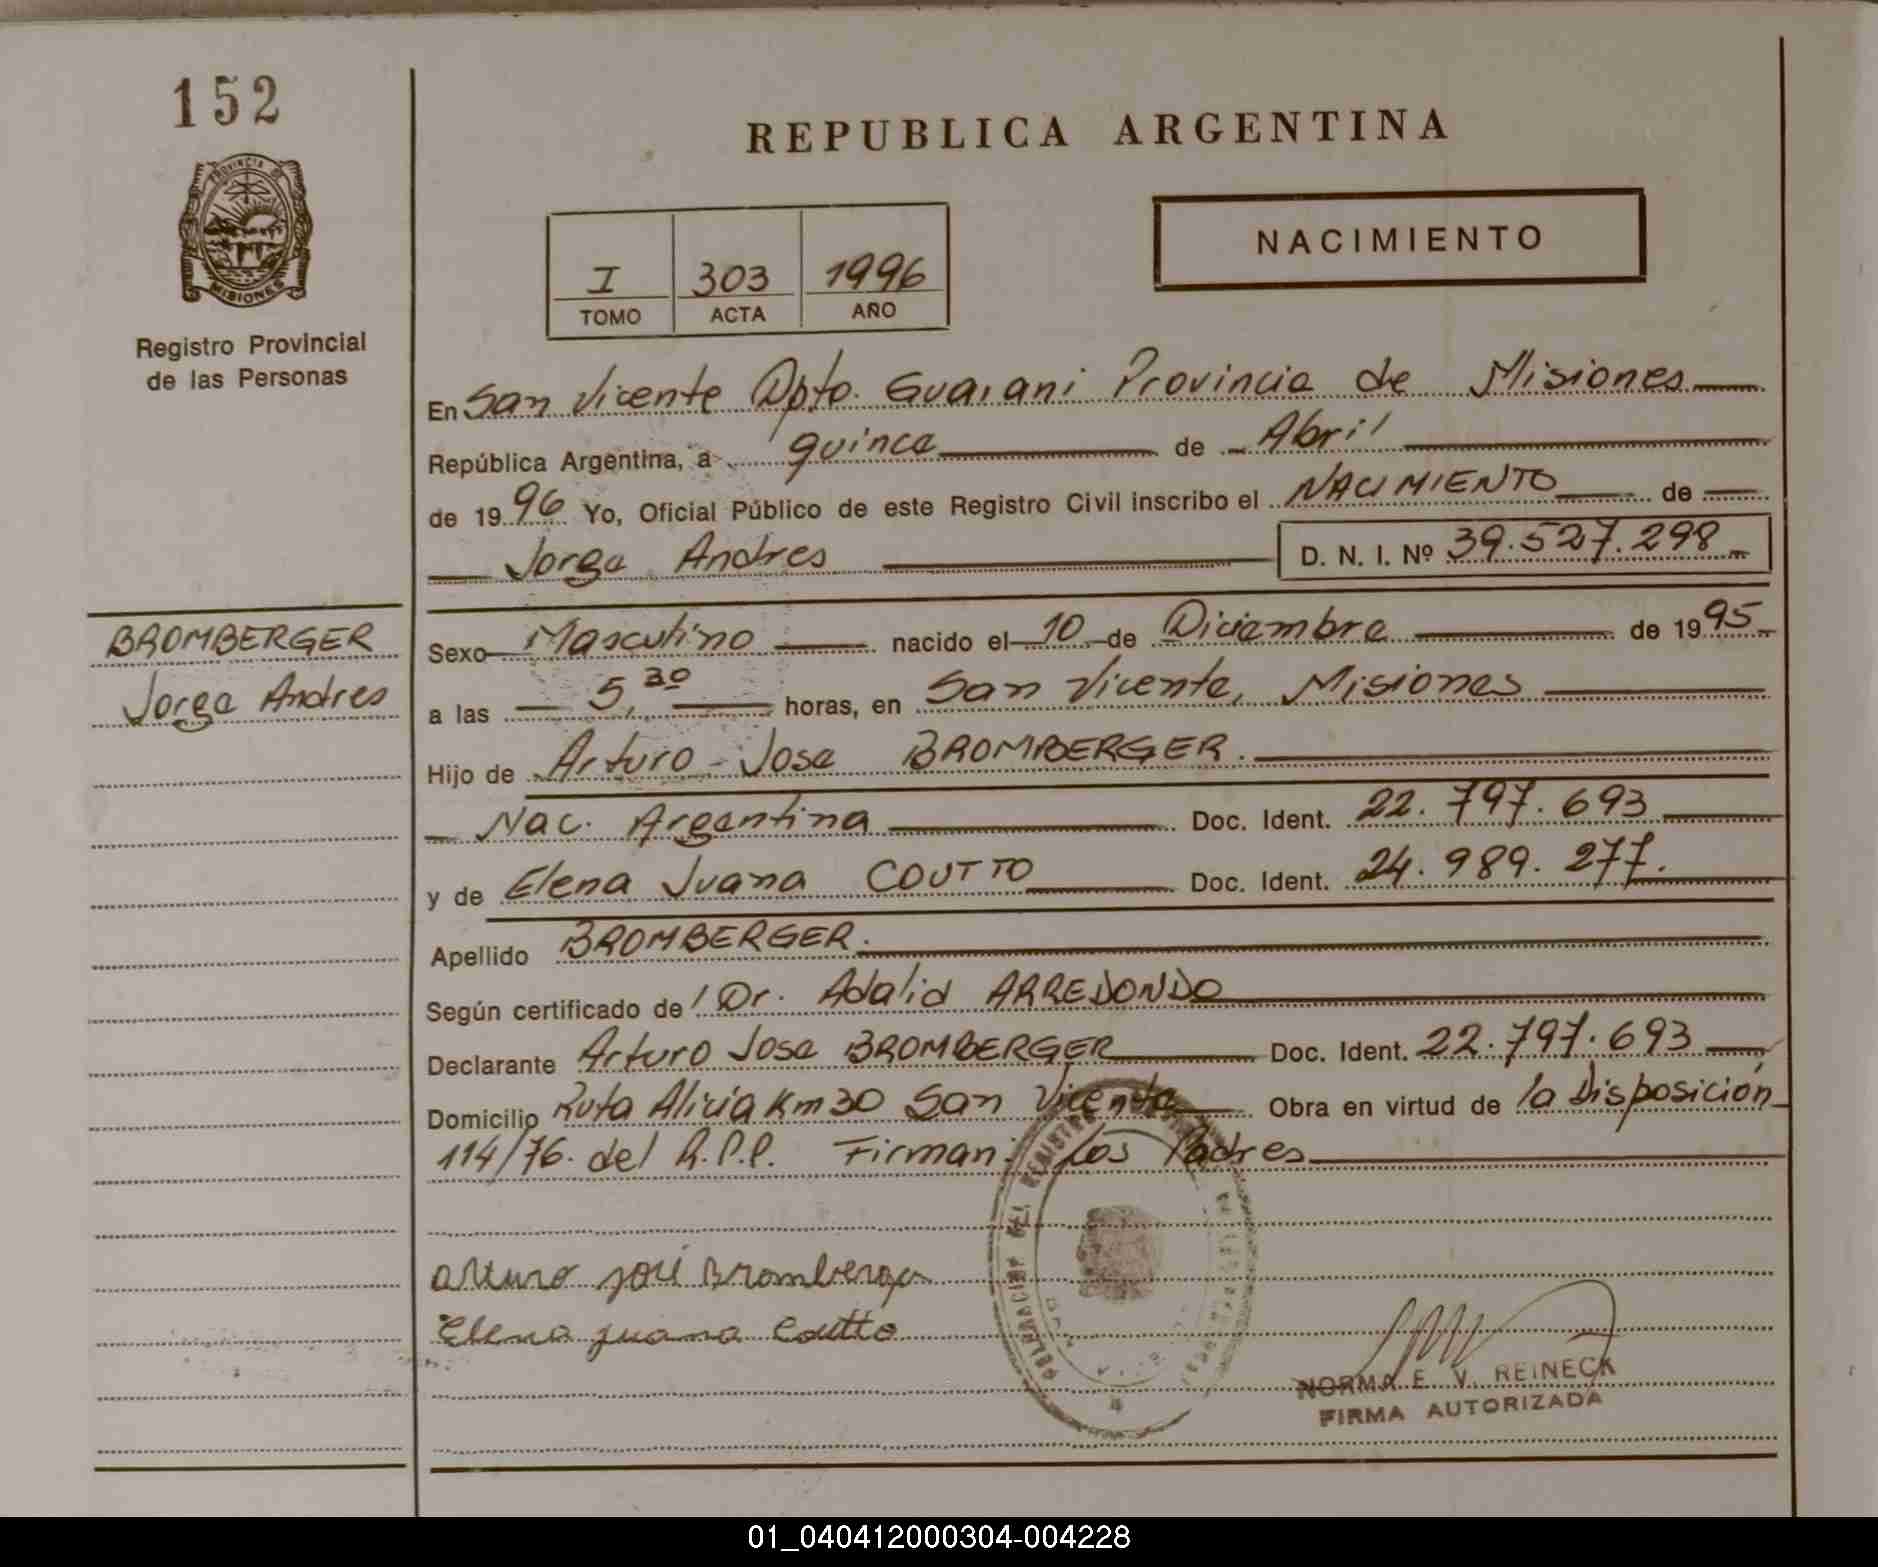 152
PROVINCIA DE
MISIONES
Registro Provincial
de las Personas
REPUBLICA ARGENTINA
NACIMIENTO
I 303 1996
TOMO ACTA AÑO
En San Vicente Dpto. Guarani Provincia de Misiones
República Argentina, a quince de Abril
de 1996 Yo, Oficial Público de este Registro Civil inscribo el NACIMIENTO de
Jorge Andres D. N. I. Nº 39.527.298
BROMBERGER
Jorge Andres
Sexo Masculino nacido el 10 de Diciembre de 1995
a las 5,30 horas, en San Vicente, Misiones
Hijo de Arturo Jose BROMBERGER.
Nac. Argentina Doc. Ident. 22.797.693
y de Elena Juana COUTTO Doc. Ident. 24.989.277.
Apellido BROMBERGER.
Según certificado de Dr. Adalid ARREDONDO
Declarante Arturo Jose BROMBERGER Doc. Ident. 22.797.693
Domicilio Ruta Alicia Km 30 San Vicente Obra en virtud de la Disposición
114/76. del R.P.P. Firman: Los Padres
Arturo José Bromberger
Elena Juana Coutto
NORMA E. V. REINECK
FIRMA AUTORIZADA
01_040412000304-004228